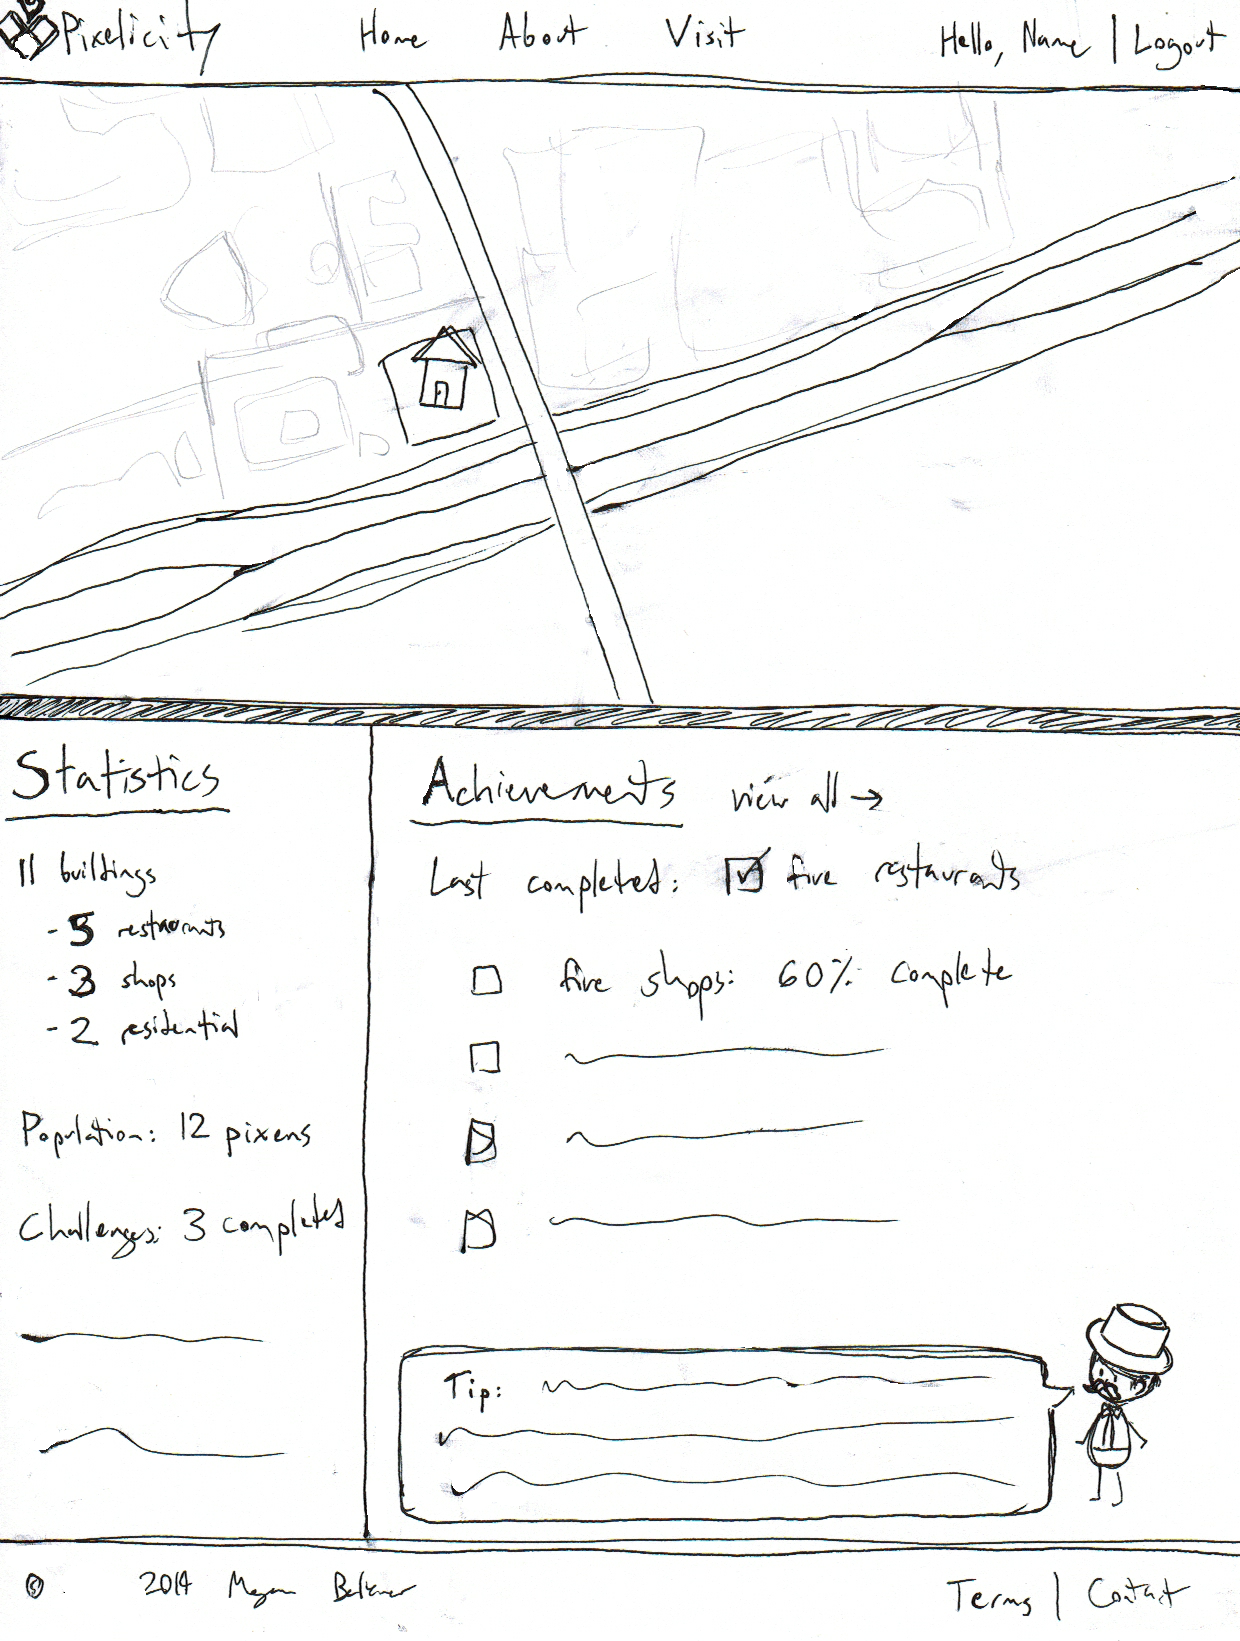 Pixelicity Home About Visit Hello, Name | Logout
Statistics
11 buildings
- 5 restaurants
- 3 shops
- 2 residential
Population: 12 pixens
Challenges: 3 completed
Achievements view all →
Last completed: ☑ five restaurants
☐ five shops: 60% complete
Tip:
2014 Megan
Terms | Contact